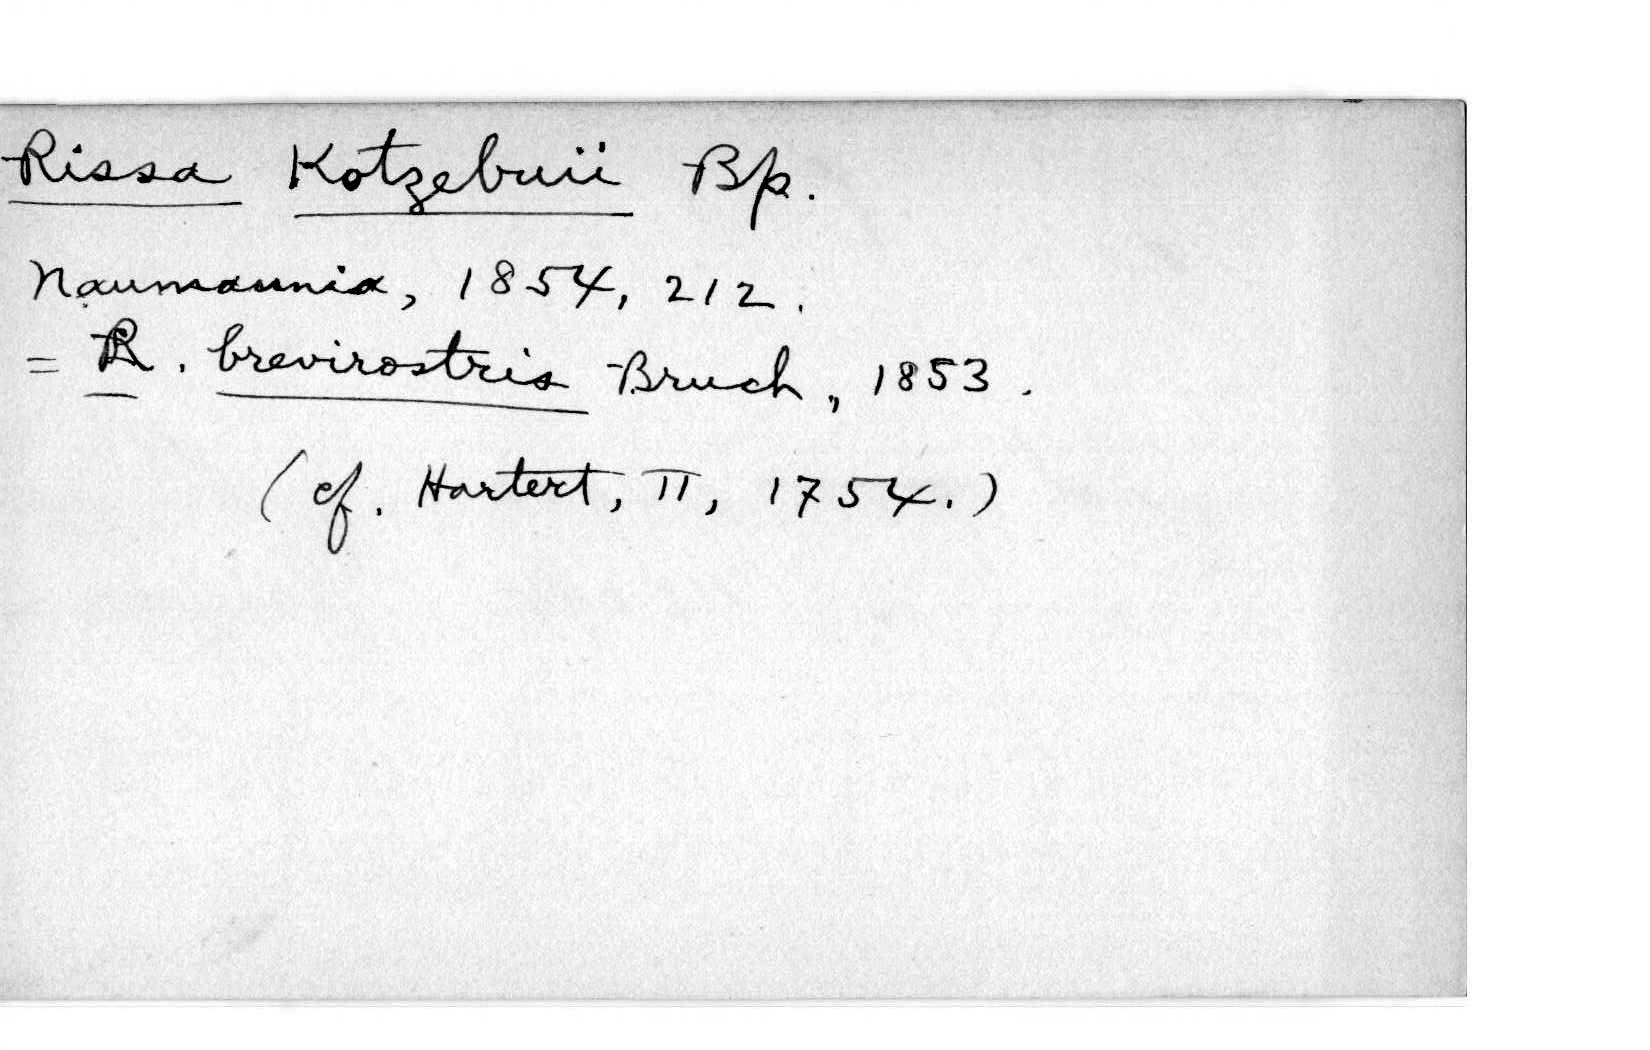 Rissa Kotzebuii Bp.
Naumannia, 1854, 212.
= R. brevirostris Bruch, 1853.
(cf. Hartert, II, 1754.)